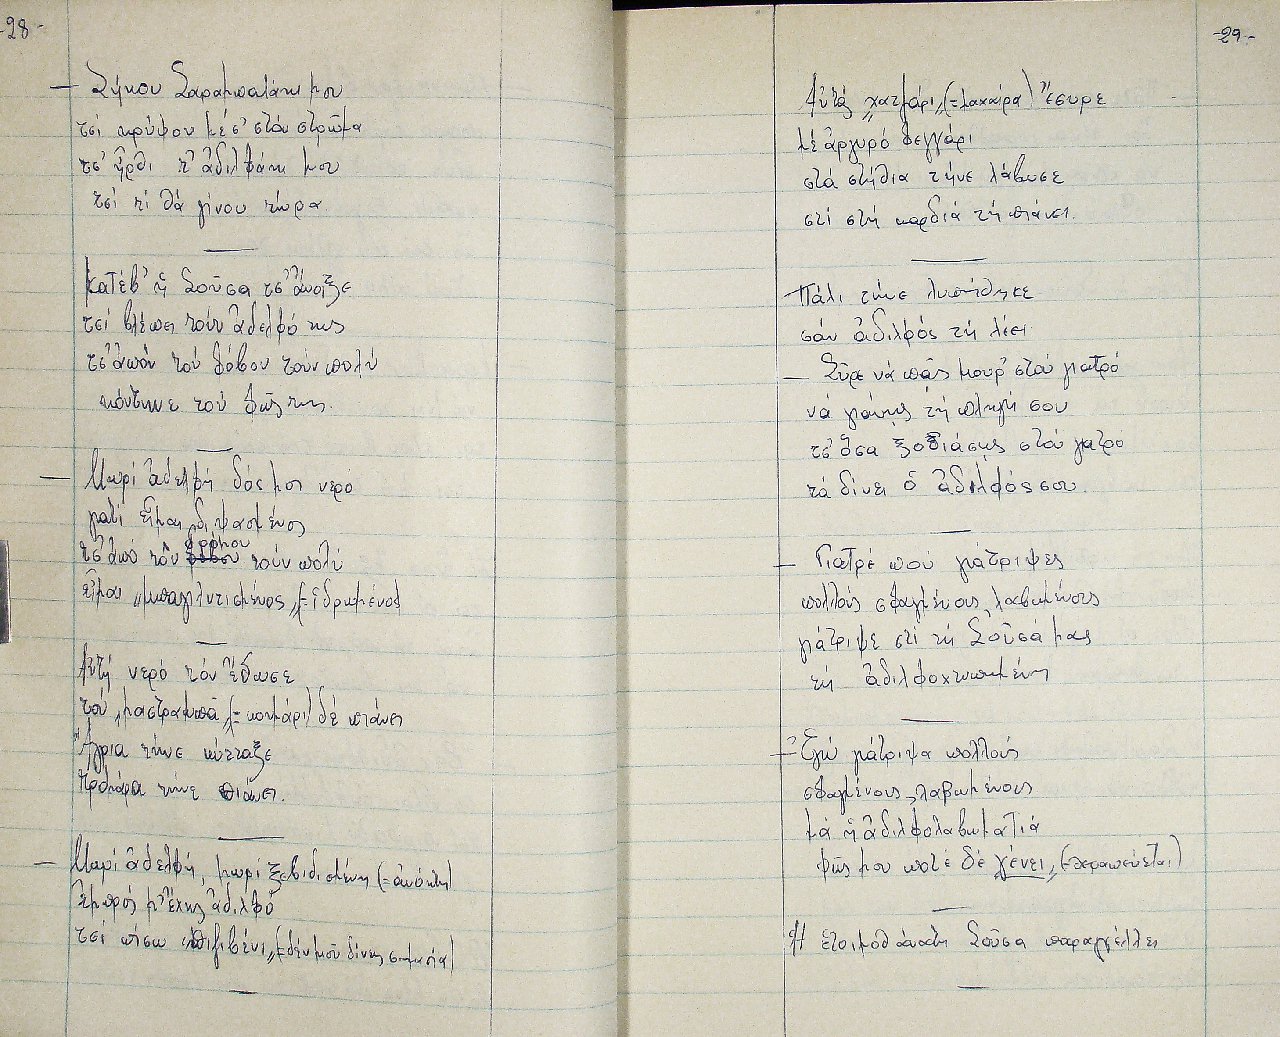 -28-
— Σήκου Σαραμπατάκι μου
τσί κρύψου μέσ' στόυ στρῶμα
τσ' ἦρθι τ' ἀδιλφάκι μου
τσί τί θά γίνου τώρα.
Κατέβ' ἡ Σοῦσα τσ' ἄνοιξε
τσί βλέπει τούν ἀδελφό της
τσ' ἀπού τού φόβου τούν πολύ
κόντηνε τού φῶς της.
— Μωρί ἀδελφή δός μου νερό
γιατί εἶμαι διψασμένος
τσ' ἀπό τόν δρόμου τούν πολύ
εἶμαι „μπαγιλντισμένος„ (= ἱδρωμένος)
Αὐτή νερό τόν ἔδωσε
τού „μαστραπᾶ„ (= κουμάρι) δέ πιάνει
Ἄγρια τήνε κύτταξε
τρομάρα τήνε πιάνει.
— Μωρί ἀδελφή, μωρί ξεβιδιστένη
ἐμπρός μ' ἔχεις ἀδιλφό
τσί πίσω (= δέν μοῦ δίνεις σημασία)
-29-
Αὐτός „χατζάρι„ (= μαχαίρα) ἔσυρε
μέ ἀργυρό φεγγάρι
στά στήθια τήνε λάβωσε
στί στή καρδιά τή πιάνει.
Πάλι τήνε λυπήθηκε
σάν ἀδιλφός τή λέει
— Σῦρε νά πᾶς μουρ' στού γιατρό
νά γιάνης τή πληγή σου
τσ' ὅσα ξοδιάσης στού γιατρό
τά δίνει ὁ ἀδιλφός σου.
— Γιατρέ πού γιάτριψες
πολλούς σφαγμένους, λαβωμένους
γιάτριψε στί τή Σοῦσά μας
τή ἀδιλφοχτυπημένη
— Ἐγώ γιάτριψα πολλούς
σφαγμένους, λαβωμένους
μά ἡ ἀδιλφολαβωματιά
φῶς μου ποτέ δέ „γένει„ (= θεραπεύεται)
Ἡ ἑτοιμοθάνατη Σοῦσα παραγγέλλει